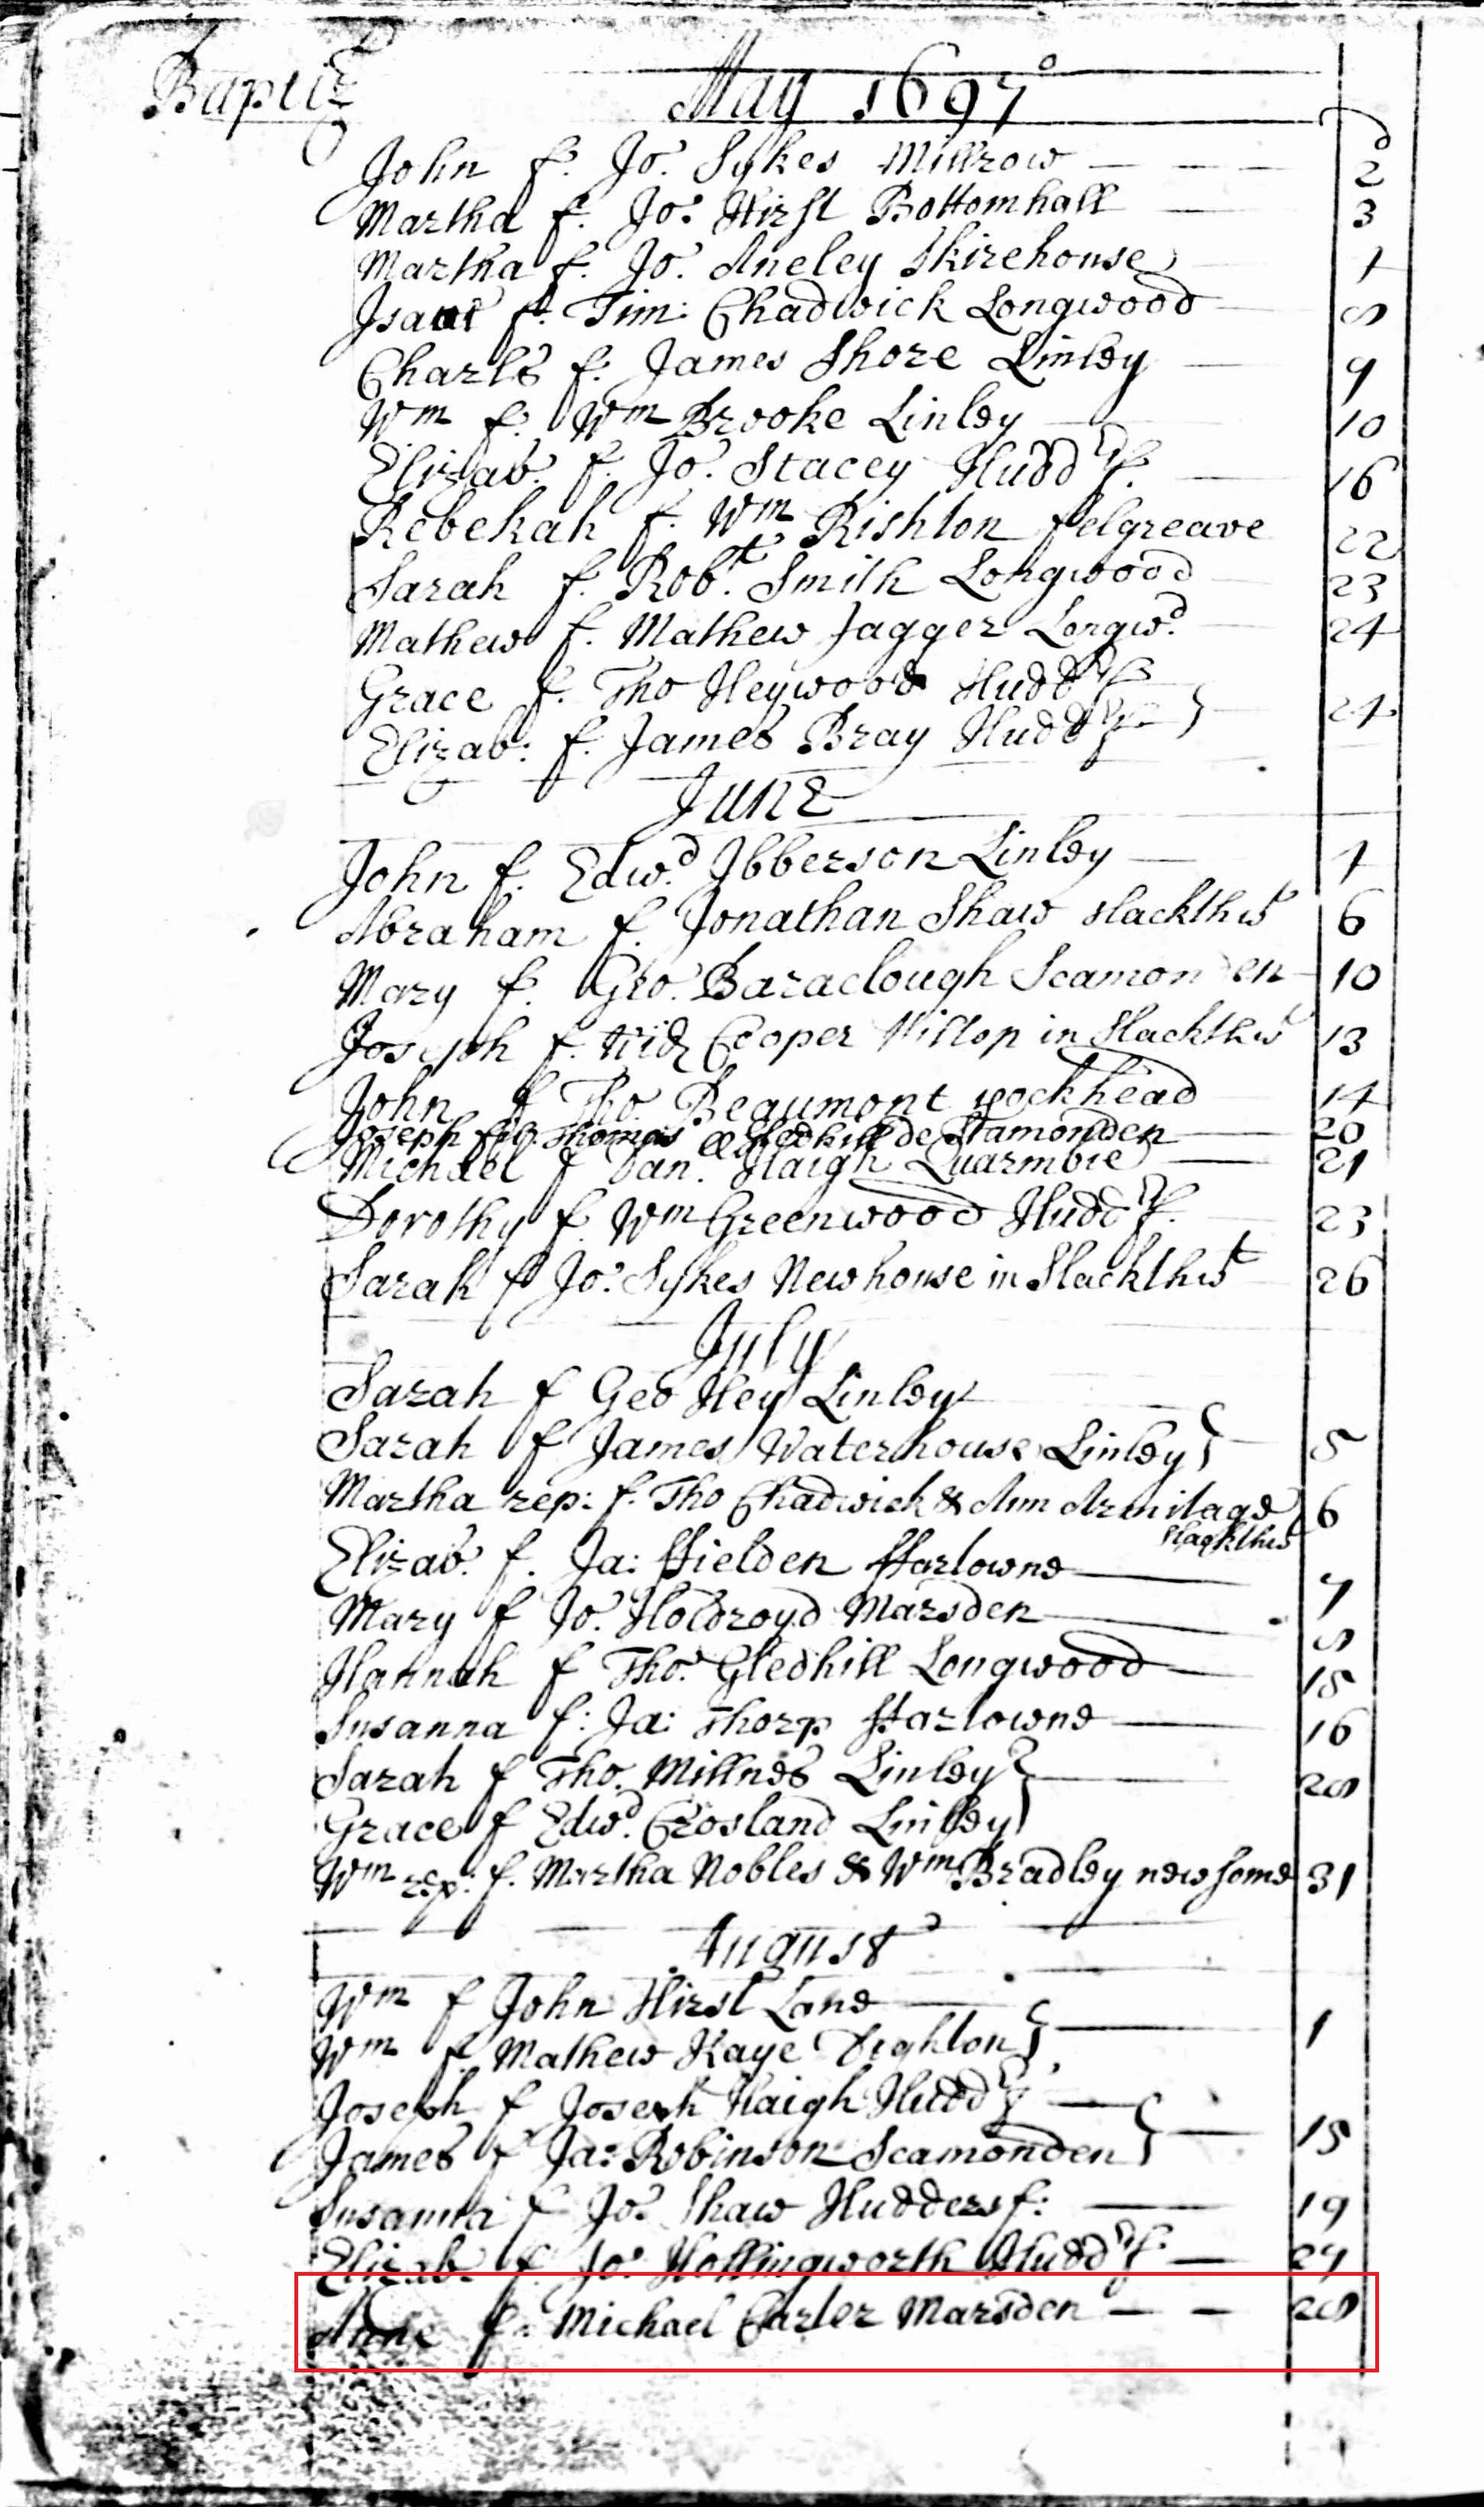 Baptiz May 1697°
John f. Jo. Sykes Millrow 2
Martha f. Jo: Hirst Bottomhall 3
Martha f. Jo. Aneley Skirehouse
Isaac f. Tim: Chadwick Longwood 8
Charls f. James Shore Linley 9
Wm f. Wm Brooke Linley 10
Elizab. f. Jo. Stacey Huddrf. 16
Rebekah f. Wm Rishton felgreave 22
Sarah f. Robt. Smith Longwood 23
Mathew f. Mathew Jagger Longwd. 24
Grace f. Tho Heywood Huddrf
Elizab: f. James Bray Huddrf 24
June
John f. Edwd. Ibberson Linley
Abraham f. Jonathan Shaw slackthwt 6
Mary f. Geo. Baraclough Scamonden 10
Joseph f. Cooper Hillop in Slackthwt 13
John f Tho. Beaumont Lockhead 14
Joseph fil. Thomas Gledhill de Stamonden 20
Michael f Dan. Haigh Quarmbie 21
Dorothy f. Wm Greenwood Huddrf. 23
Sarah f Jo: Sykes Newhouse in Slackthwt 26
July
Sarah f Geo Hey Linley
Sarah f James Waterhouse Linley 5
Martha rep: f. Tho Chadwick & Ann Armitage 6
slackthwt
Elizab. f. Ja: Hielden Hartowne 7
Mary f Jo. Holdroyd Marsden 8
Hannah f Tho. Gledhill Longwood 15
Susanna f: Ja: Thorp Hartowne 16
Sarah f Tho. Millnes Linley 28
Grace f Edwd. Crosland Linlley
Wm rep: f. Martha Nobles & Wm Bradley newsome 31
August
Wm f John Hirst Lane
Wm f. Mathew Kaye Dighton 1
Joseph f Joseph Haigh Huddrf
James f Ja: Robinson Scamonden 15
Susanna f Jo. Shaw Huddersf: 19
Elizab: f. Jo. Hollingworth Huddrf.
Anne f. Michael Carter Marsden 28